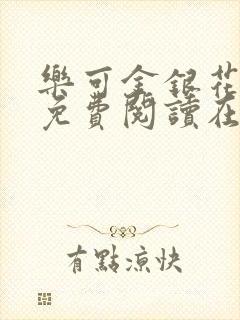 樂可金銀花
免費閱讀在
有點涼快